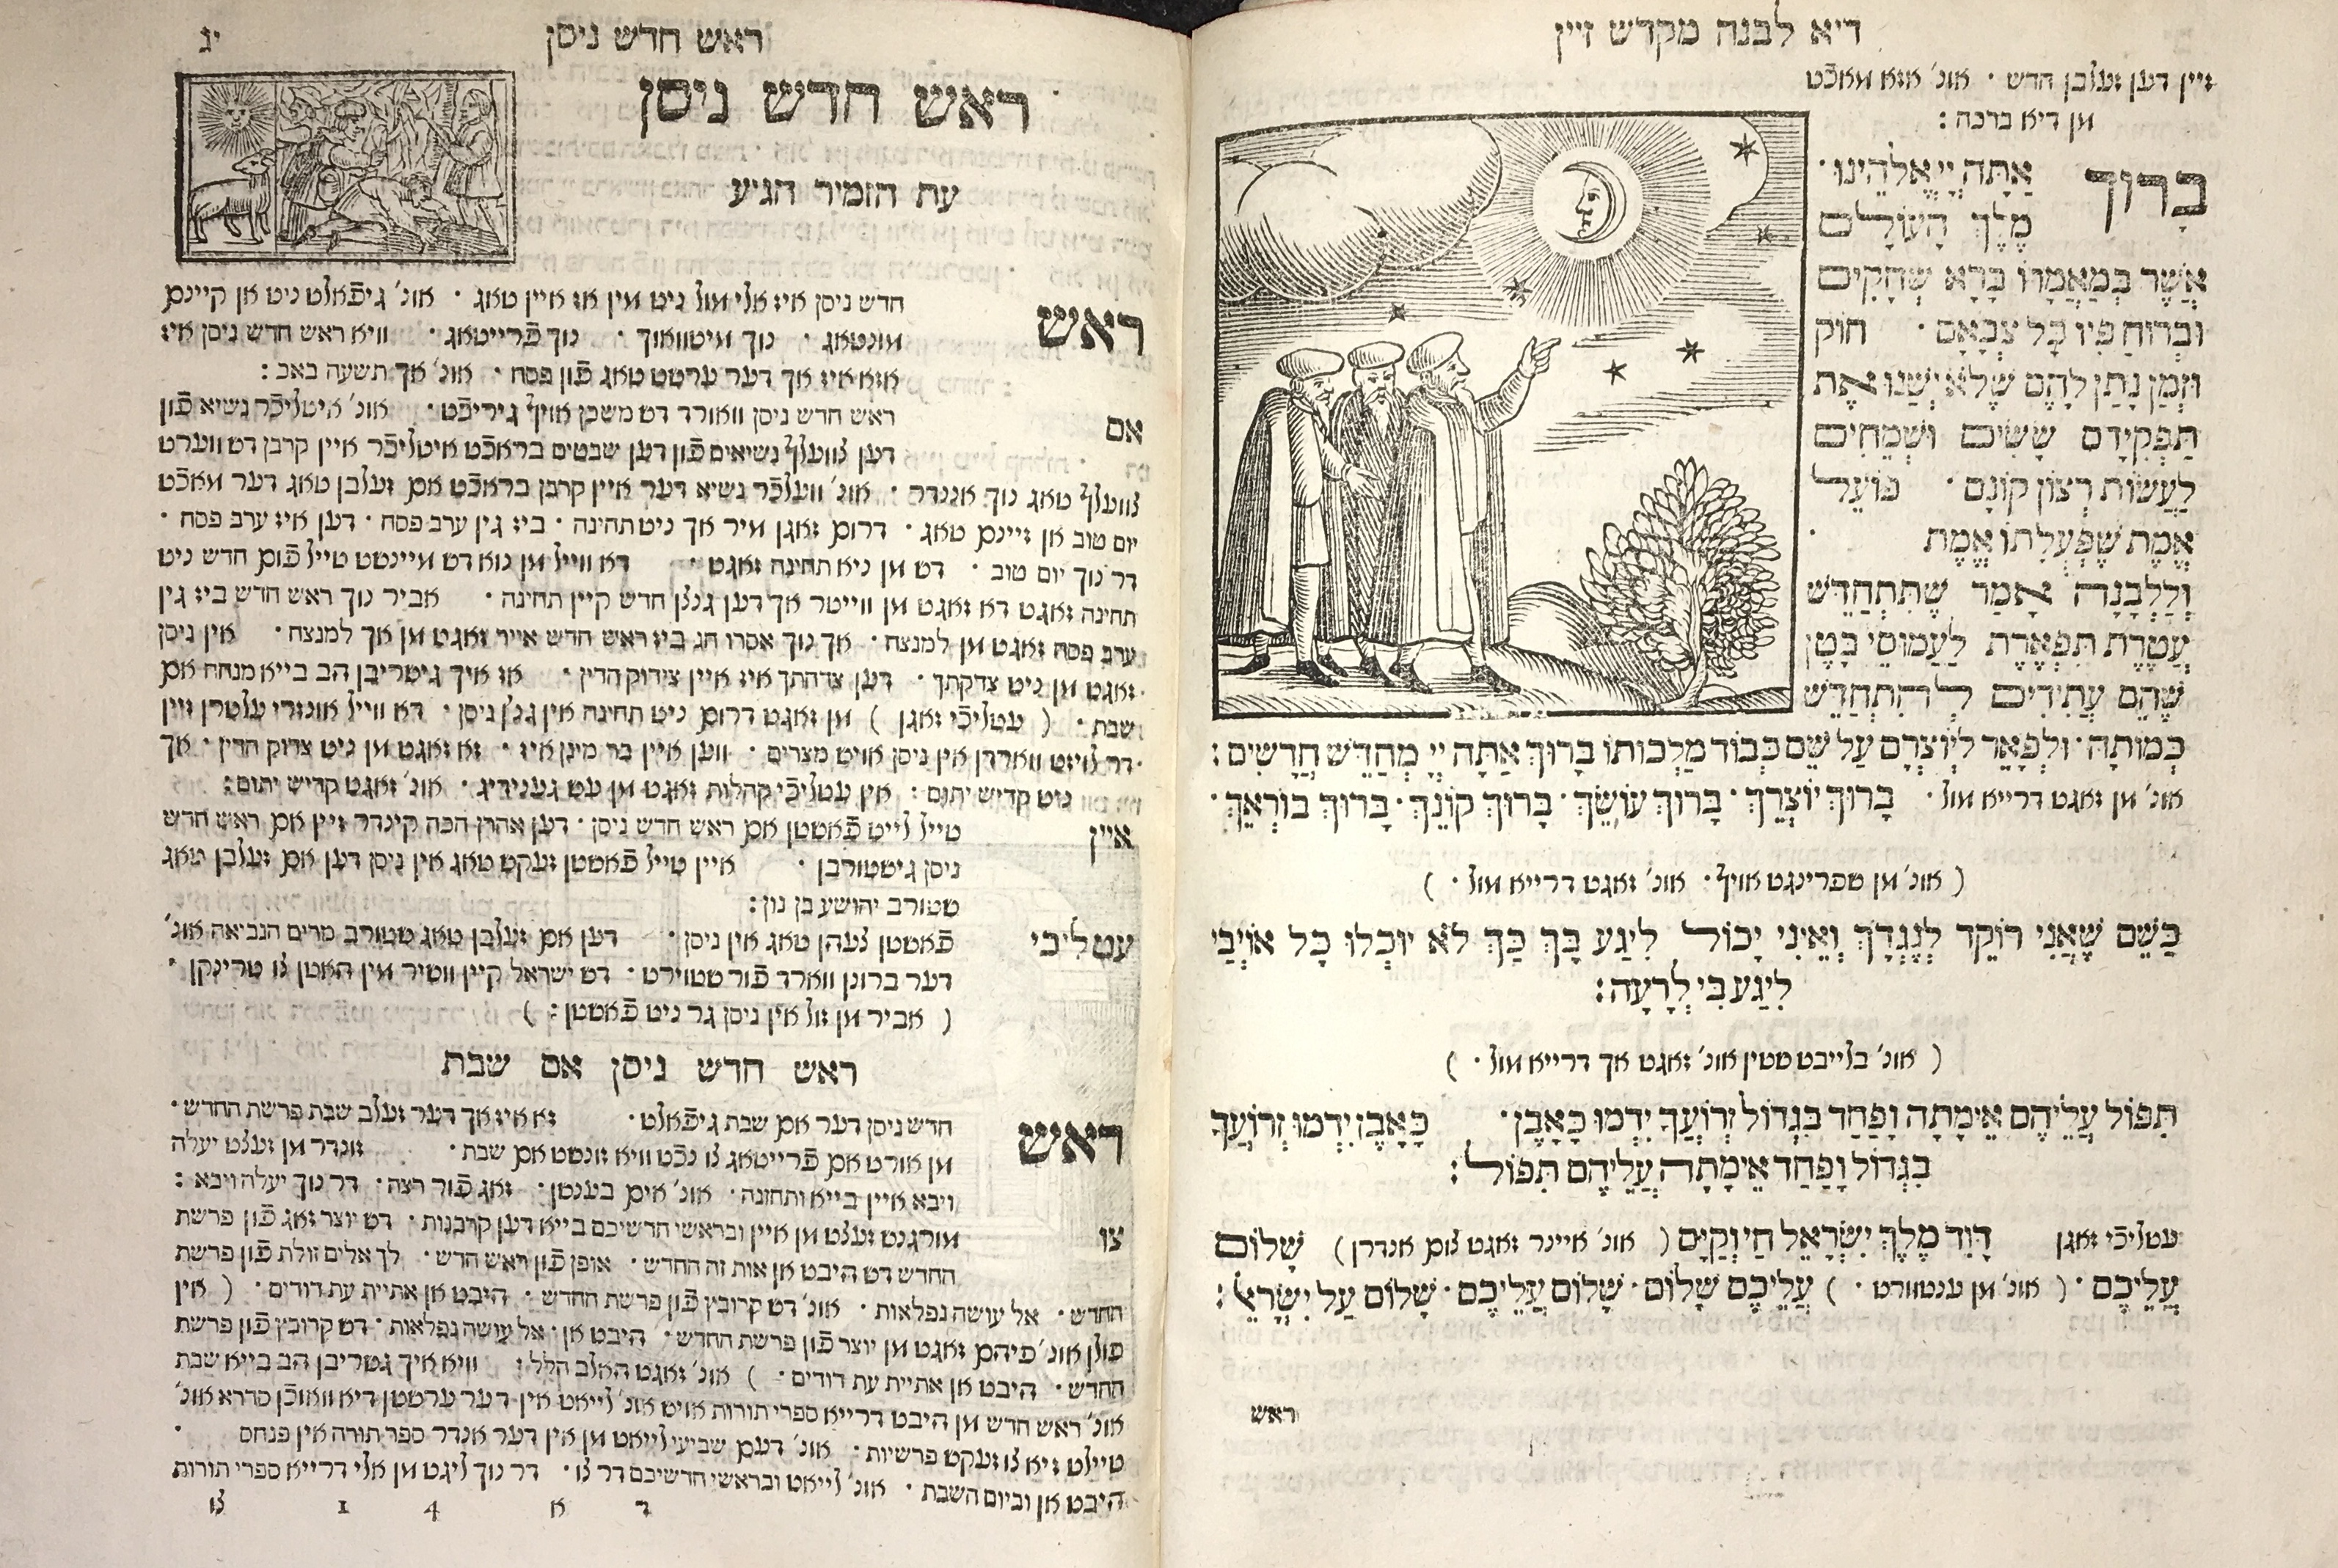 דיא לבנה מקדש זיין
זיין דען זעלבן חדש · אונ' אזא מאכֿט
מן דיא ברכה :
בָּרוּךְ אַתָּה יְיָ אֱלֹהֵינוּ ·
מֶלֶךְ הָעוֹלָם
אֲשֶׁר בְּמַאֲמָרוֹ בָּרָא שְׁחָקִים
וּבְרוּחַ פִּיו כָּל צְבָאָם · חוֹק
וּזְמַן נָתַן לָהֶם שֶׁלֹּא יְשַׁנּוּ אֶת
תַּפְקִידָם שָׂשִׂים וּשְׂמֵחִים
לַעֲשׂוֹת רְצוֹן קוֹנָם · פּוֹעֵל
אֱמֶת שֶׁפְּעֻלָּתוֹ אֱמֶת ·
וְלַלְּבָנָה אָמַר שֶׁתִּתְחַדֵּשׁ
עֲטֶרֶת תִּפְאֶרֶת לַעֲמוּסֵי בָטֶן
שֶׁהֵם עֲתִידִים לְהִתְחַדֵּשׁ
כְּמוֹתָהּ · וּלְפָאֵר לְיוֹצְרָם עַל שֵׁם כְּבוֹד מַלְכוּתוֹ בָּרוּךְ אַתָּה יְיָ מְחַדֵּשׁ חֳדָשִׁים :
אונ' מן זאגט דרייא מול · בָּרוּךְ יוֹצְרֵךְ · בָּרוּךְ עוֹשֵׂךְ · בָּרוּךְ קוֹנֵךְ · בָּרוּךְ בּוֹרְאֵךְ ·
( אונ' מן שפרינגט אויף · אונ' זאגט דרייא מול · )
כְּשֵׁם שֶׁאֲנִי רוֹקֵד לְנֶגְדֵּךְ וְאֵינִי יָכוֹל לִיגַּע בָּךְ כַּךְ לֹא יוּכְלוּ כָּל אוֹיְבַי
לִיגַּע בִּי לְרָעָה :
( אונ' בלייבט שטין אונ' זאגט אך דרייא מול · )
תִּפּוֹל עֲלֵיהֶם אֵימָתָה וָפַחַד בִּגְדוֹל זְרוֹעֲךָ יִדְּמוּ כָּאָבֶן · כָּאָבֶן יִדְּמוּ זְרוֹעֲךָ
בִּגְדוֹל וָפַחַד אֵימָתָה עֲלֵיהֶם תִּפּוֹל :
עטליכֿי זאגן דָּוִד מֶלֶךְ יִשְׂרָאֵל חַי וְקַיָּם ( אונ' איינר זאגט צום אנדרן ) שָׁלוֹם
עֲלֵיכֶם · ( אונ' מן ענטוורט · ) עֲלֵיכֶם שָׁלוֹם · שָׁלוֹם עֲלֵיכֶם · שָׁלוֹם עַל יִשְׂרָאֵל :
ראש
ראש חדש ניסן יג
ראש חדש ניסן
עת הזמיר הגיע
ראש חדש ניסן איז אלי מול ניט מין אז איין טאג · אונ' גיפֿאלט ניט אן קיינם
מונטאג · נוך מיטוואוך · נוך פֿרייטאג · וויא ראש חדש ניסן איז
אזא איז אך דער ערשט טאג פֿון פסח · אונ' אך תשעה באב :
אם ראש חדש ניסן ווארד דש משכן אויף גיריכֿט · אונ' איטליכֿר נשיא פֿון
דען צוועלף נשיאים פֿון דען שבטים בראכֿט איטליכֿר איין קרבן דש ווערט
צוועלף טאג נוך אננדר · אונ' וועלכֿר נשיא דער איין קרבן בראכֿט אם זעלבן טאג דער מאכֿט
יום טוב אן זיינם טאג · דרום זאגן מיר אך ניט תחינה · ביז גין ערב פסח · דען איז ערב פסח ·
דר נוך יום טוב · דש מן ניא תחינה זאגט · דא ווייל מן נוא דש מיינשט טייל פֿום חדש ניט
תחינה זאגט דא זאגט מן ווייטר אך דען גנצן חדש קיין תחינה · אביר נוך ראש חדש ביז גין
ערב פסח זאגט מן למנצח · אך נוך אסרו חג ביז ראש חדש אייר זאגט מן אך למנצח · אין ניסן
זאגט מן ניט צדקתך · דען צדקתך איז איין צידוק הדין · אז איך גישריבן הב בייא מנחה אם
שבת · ( עטליכֿי זאגן ) מן זאגט דרום ניט תחינה אין גנצן ניסן · דא ווייל אונזרי עלטרן זיין
דר לויזט ווארדן אין ניסן אויש מצרים · ווען איין בר מינן איז · זא זאגט מן ניט צדוק הדין · אך
ניט קדיש יתום : אין עטליכֿי קהלות זאגט מן עש גענידיג · אונ' זאגט קדיש יתום :
איין טייל לייט פֿאשטן אם ראש חדש ניסן · דען אהרן הכה קינדר זיין אם ראש חדש
ניסן גישטורבן · איין טייל פֿאשטן זעקט טאג אין ניסן דען אם זעלבן טאג
שטורב יהושע בן נון :
עטליכי פֿאשטן צעהן טאג אין ניסן · דען אם זעלבן טאג שטורב מרים הנביאה אונ'
דער ברונן ווארד פֿור שטוירט · דש ישראל קיין וושיר מין האטן צו טרינקן ·
( אביר מן זול אין ניסן גר ניט פֿאשטן : )
ראש חדש ניסן אם שבת
ראש חדש ניסן דער אם שבת גיפֿאלט · זא איז אך דער זעלב שבת פרשת החדש ·
מן אורט אם פֿרייטאג צו נכֿט וויא זונשט אם שבת · זונדר מן זעצט יעלה
ויבא איין בייא ותחזנה · אונ' אים בענטשן · זאג פֿור רצה · דר נוך יעלה ויבא :
צו מורגנש זעצט מן איין ובראשי חדשיכם בייא דען קרבנות · דש יוצר זאג פֿון פרשת
החדש דש היבט אן אות זה החדש · אופן פֿון ראש חדש · לך אלים זולת פֿון פרשת
החדש · אל עושה נפלאות · אונ' דש קרובץ פֿון פרשת החדש · היבט אן אתיית עת דודים · ( אין
פולן אונ' פיהם זאגט מן יוצר פֿון פרשת החדש · היבט אן · אל עושה נפלאות · דש קרובץ פֿון פרשת
החדש · היבט אן אתיית עת דודים · ) אונ' זאגט האלב הלל : וויא איך גשריבן הב בייא שבת
אונ' ראש חדש מן היבט דרייא ספרי תורות אויש אונ' לייאט אין דער ערשטן דיא וואוכֿן סדרא אונ'
טיילט זיא צו זעקש פרשיות · אונ' דעם שביעי לייאט מן אין דער אנדר ספר תורה אין פנחס ·
היבט אן וביום השבת · אונ' לייאט ובראשי חדשיכם דר צו · דר נוך ליגט מן אלי דרייא ספרי תורות
ד א 4 1 צו